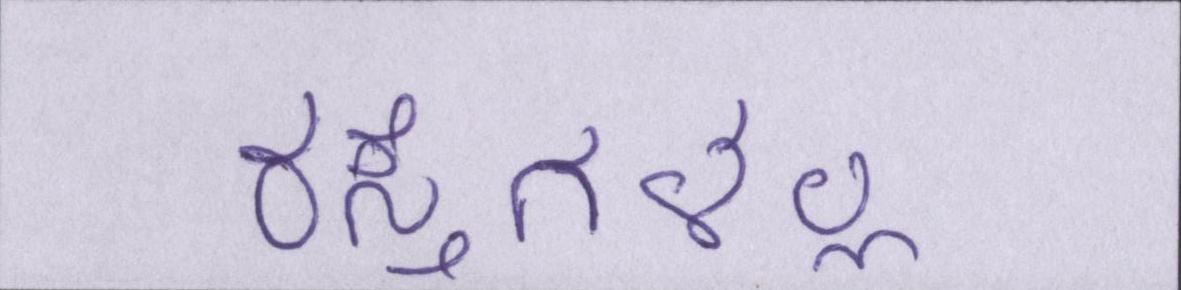 ರಸ್ತೆಗಳಲ್ಲಿ